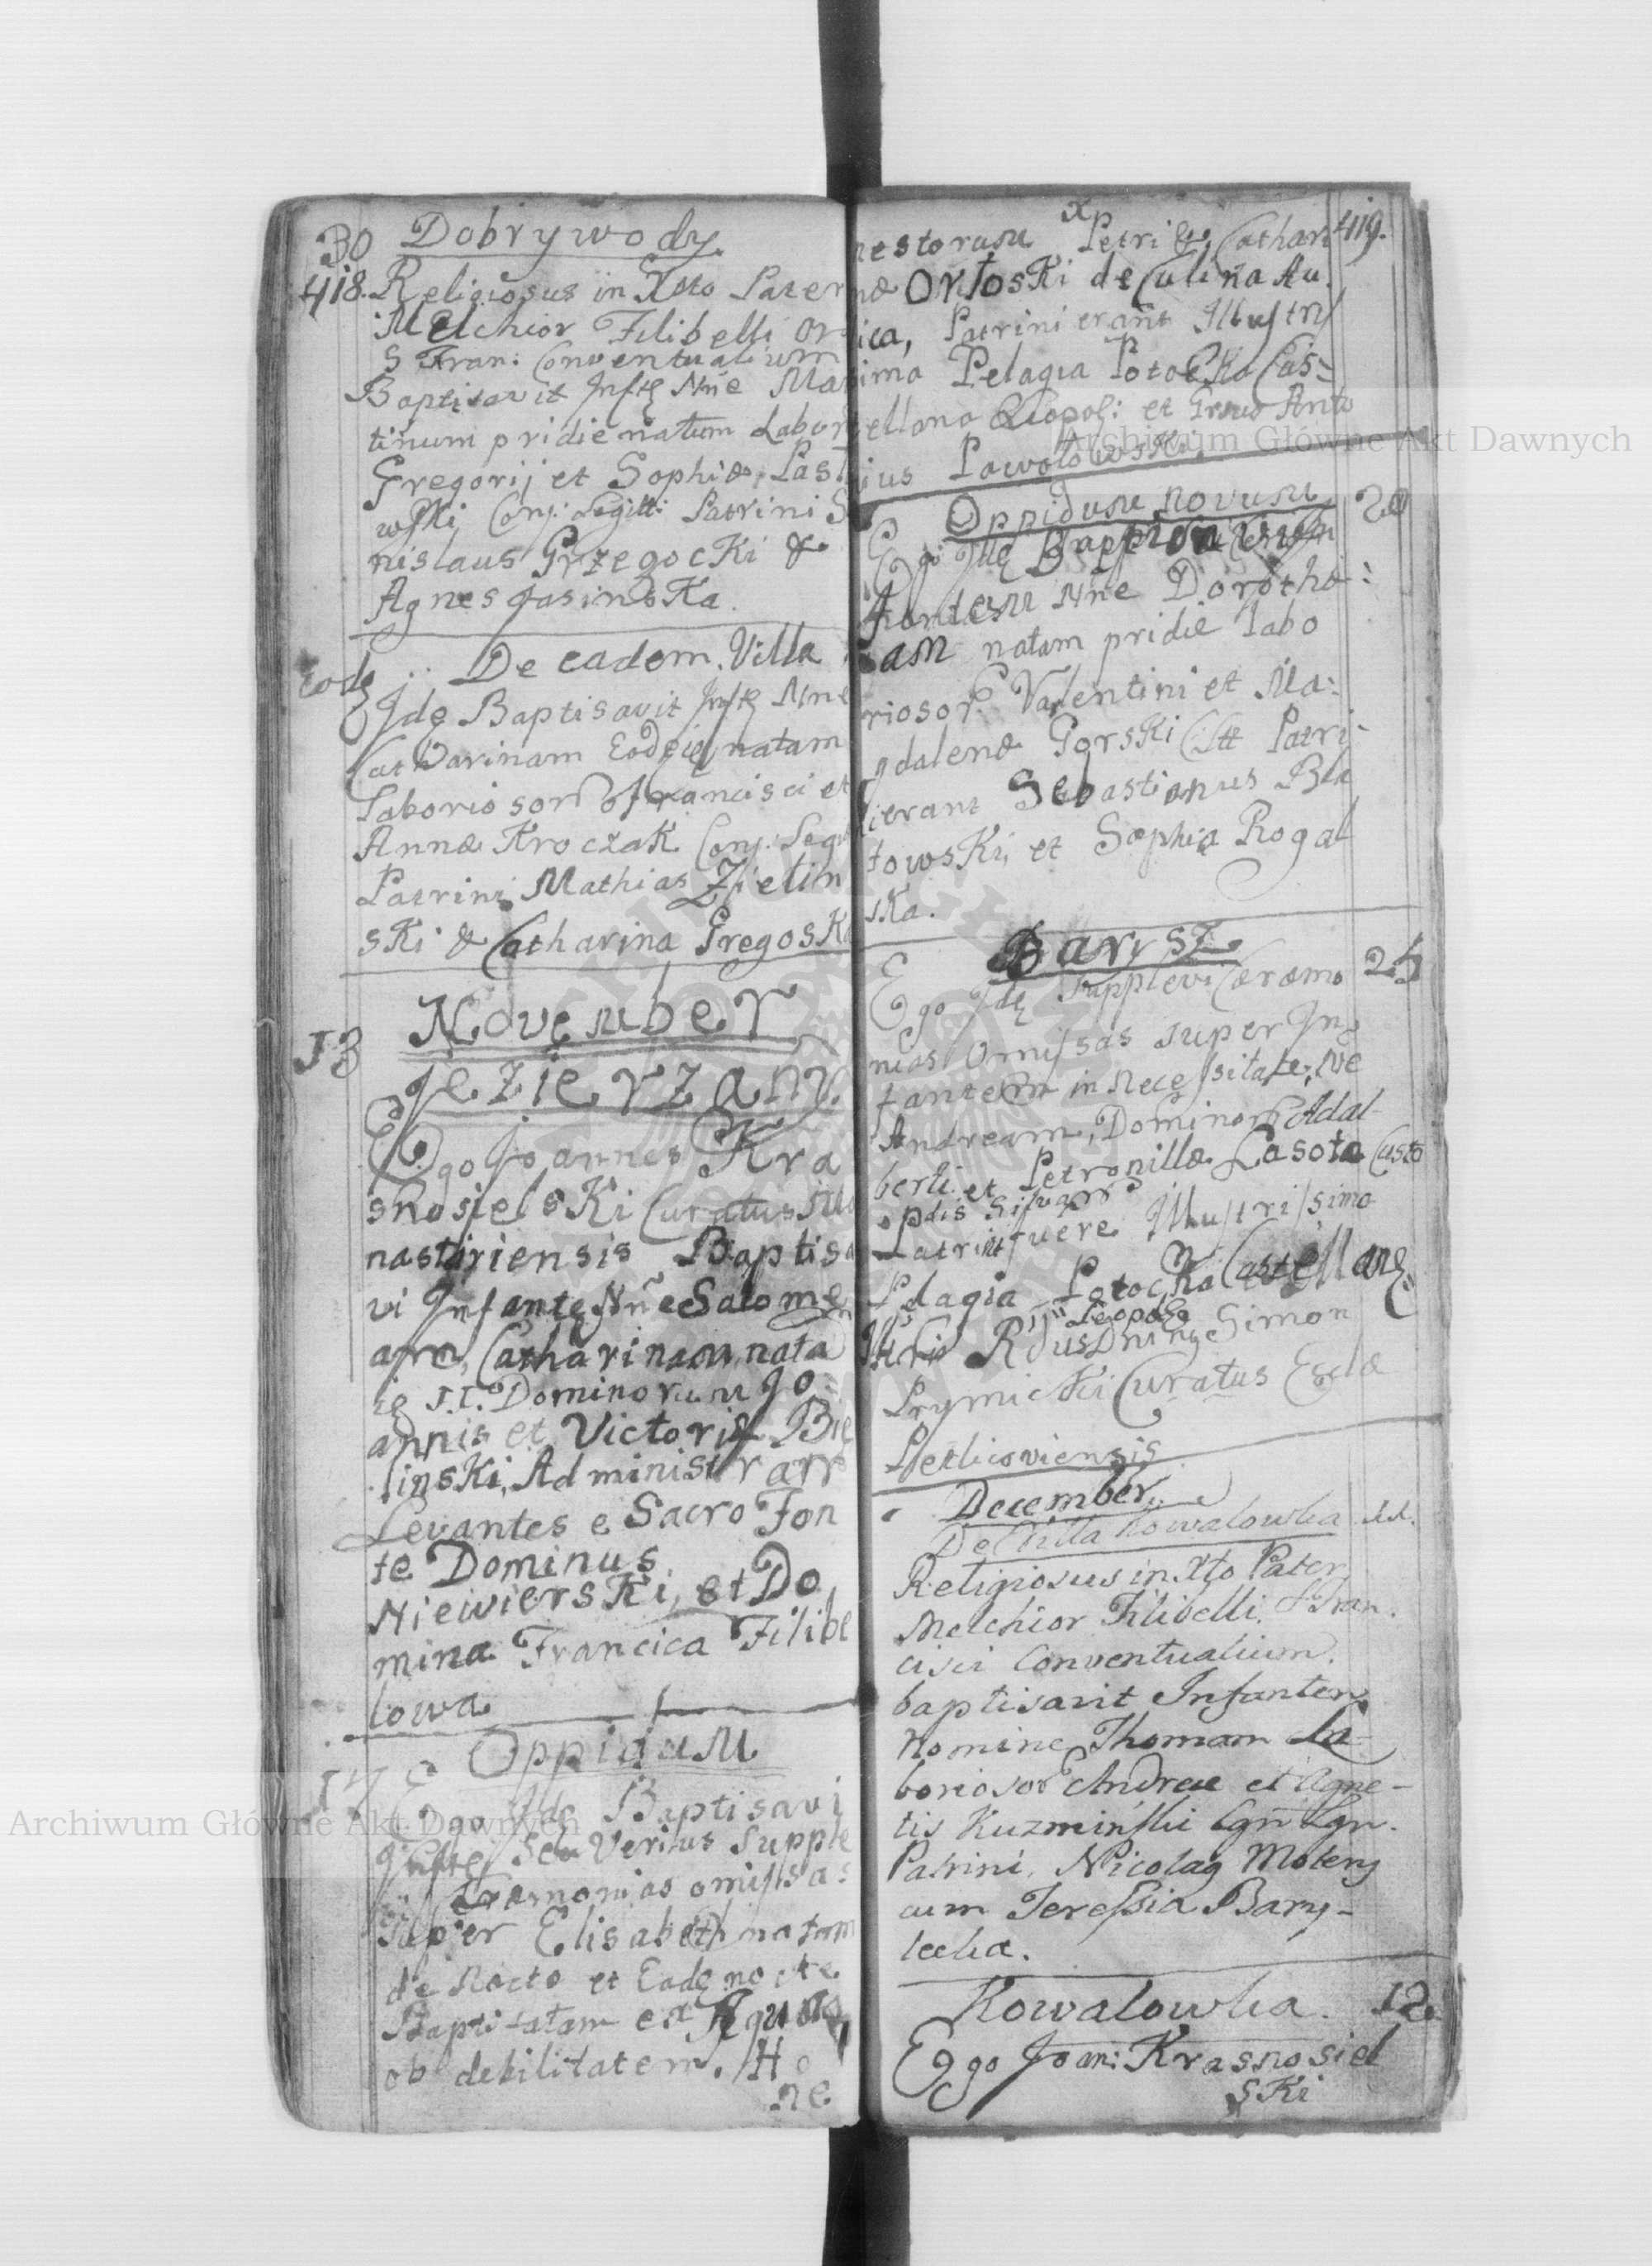 30 Dobrywody
418. Religiosus in Xsto Pater
Melchior Filibelli Or
S Fran: Conventualium
Baptisavit Infte Nne Mar
tinum pridie natum Labor
Gregorij et Sophiæ, Past
wski Conj: Legitti Patrini S
nislaus Grzegocki &
Agnes Jasinska.
Eode De eadem Villa
Ide Baptisavit Infte Nne
Catharinam Eodie natam
Laboriosor Francisci et
Annæ Kroczak Conj: Legit
Patrini Mathias Zielin
ski & Catharina Gregoska
November
13 Jezierzany
Ego Joannes Kra
snosielski Curatus Mo
nastiriensis Baptisa
vi Infante Nne Salome
am, Catharinam nata
ie 11. Dominorum Jo
annis et Victoriæ Bie
linski, Administrarr
Levantes e Sacro Fon
te Dominus
Niewierski, et Do
mina Francica Filibe
lowa
Oppidum
17 Ego Ide Baptisavi
Infte seu Verius Supple
vi Cæremonias omissas
super Elisabeth natam
de Nocto et Eade nocte
Baptisatam ex Aqua
ob debilitatem. Ho
ne
nestorum Petri & Cathari 419.
næ Ortoski de Culina Au
ica, Patrini erant Illustris
sima Pelagia Potocka Cas=
tellana Leopoli: et Grsus Anto
ius Pawołowski
Oppidum novum 20
Ego Ide Baptisavi
fantem Nne Dorothe:
am natam pridie Labo
riosor Valentini et Ma:
gdalenæ Gorski CLtt Patri-
ierant Sebastianus Bla
towski, et Sophia Rogal
ska.
Barysz 25
Ego Ide Supplevi Cæremo
nias Omissas super In=
fantem in necessitate, Ne
Andream, Dominor Adal-
berti et Petronillæ Lasota Custo
dis Silvarr
Patrini fuere Illustrissima
Pelagia Potocka Castellane
Leopols
Rdus Dnus Simon
Prymicki Curatus Eccla
Petlicoviensis
December
De Villa Kowalowka 11.
Religiosus in Xto Pater
Melchior Filibelli S Fran.
cisci Conventualium.
baptisavit Infantem
Nomine Thomam La
boriosor Andreæ et Agne-
tis Kuzminski Cgn Lgn.
Patrini. Nicolag Motery
cum Teressia Barys-
tecka.
Kowalowka. 12.
Ego Joan: Krasnosiel
ski